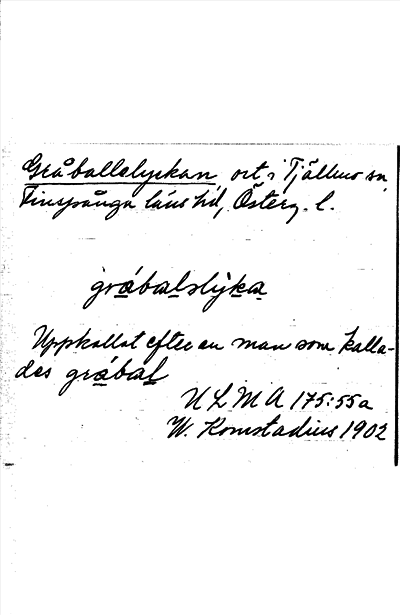 Gråballslyckan, ort i Tjällmo sn,
Finspånga läns hd, Österg. l.
gråbalslyka
Uppkallat efter en man som kalla-
des gråbal
ULMA 175:55a
W. Komstadius 1902